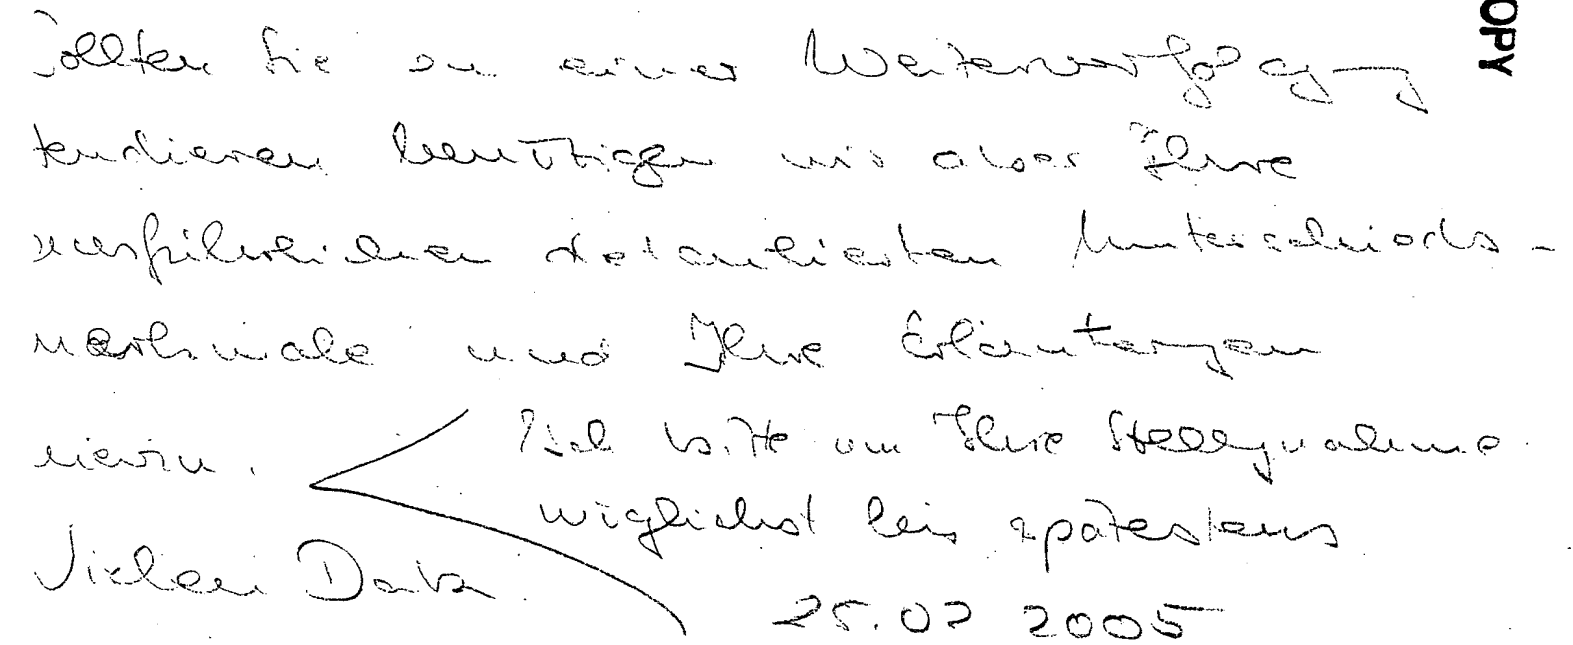 Sollten Sie zu einer Weiterverfolgung
tendieren benötigen wir aber Ihre
ausführlichen detaillierten Unterschieds-
merkmale und Ihre Erläuterungen
hierzu.
Ich bitte um Ihre Stellungnahme
möglichst bis spätestens
Vielen Dank.
25.02 2005
OPY